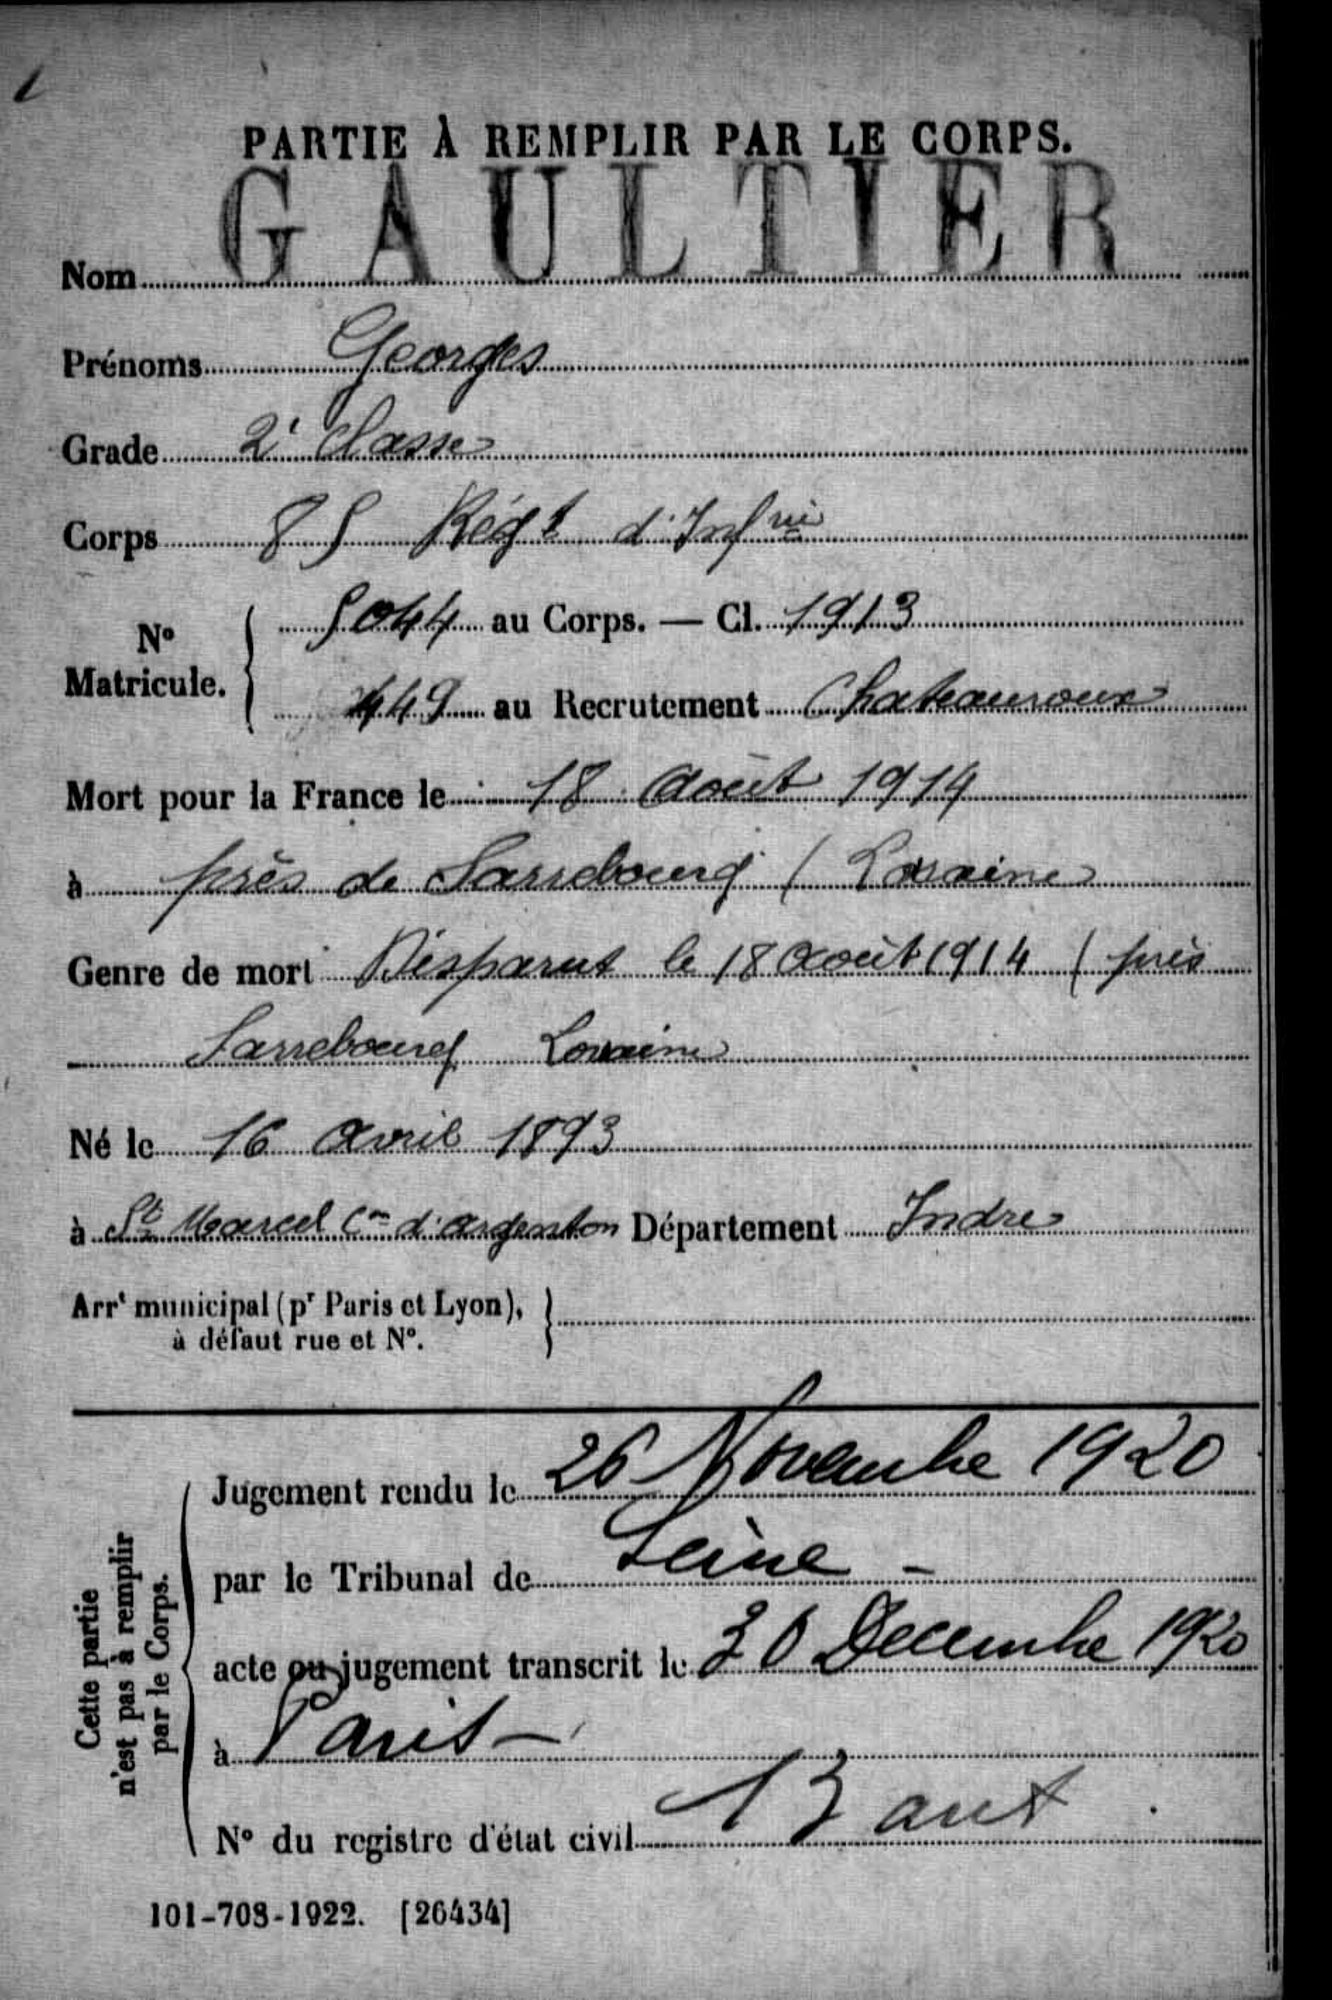 PARTIE À REMPLIR PAR LE CORPS.
Nom GAULTIER
Prénoms Georges
Grade 2e Classe
Corps 85 Régt d'Infrie
N° Matricule. { 5044 au Corps. — Cl. 1913
449 au Recrutement Chateauroux
Mort pour la France le 18 Août 1914
à près de Sarrebourg (Lorraine
Genre de mort Disparut le 18 août 1914 (près
Sarrebourg Lorraine
Né le 16 avril 1893
à St Marcel Con d'argenton Département Indre
Arrt municipal (pr Paris et Lyon), }
à défaut rue et N°.
Cette partie
n'est pas à remplir
par le Corps.
Jugement rendu le 26 Novembre 1920
par le Tribunal de Seine -
acte ou jugement transcrit le 30 Decembre 1920
à Paris -
N° du registre d'état civil 13 arrt
101-708-1922. [26434]